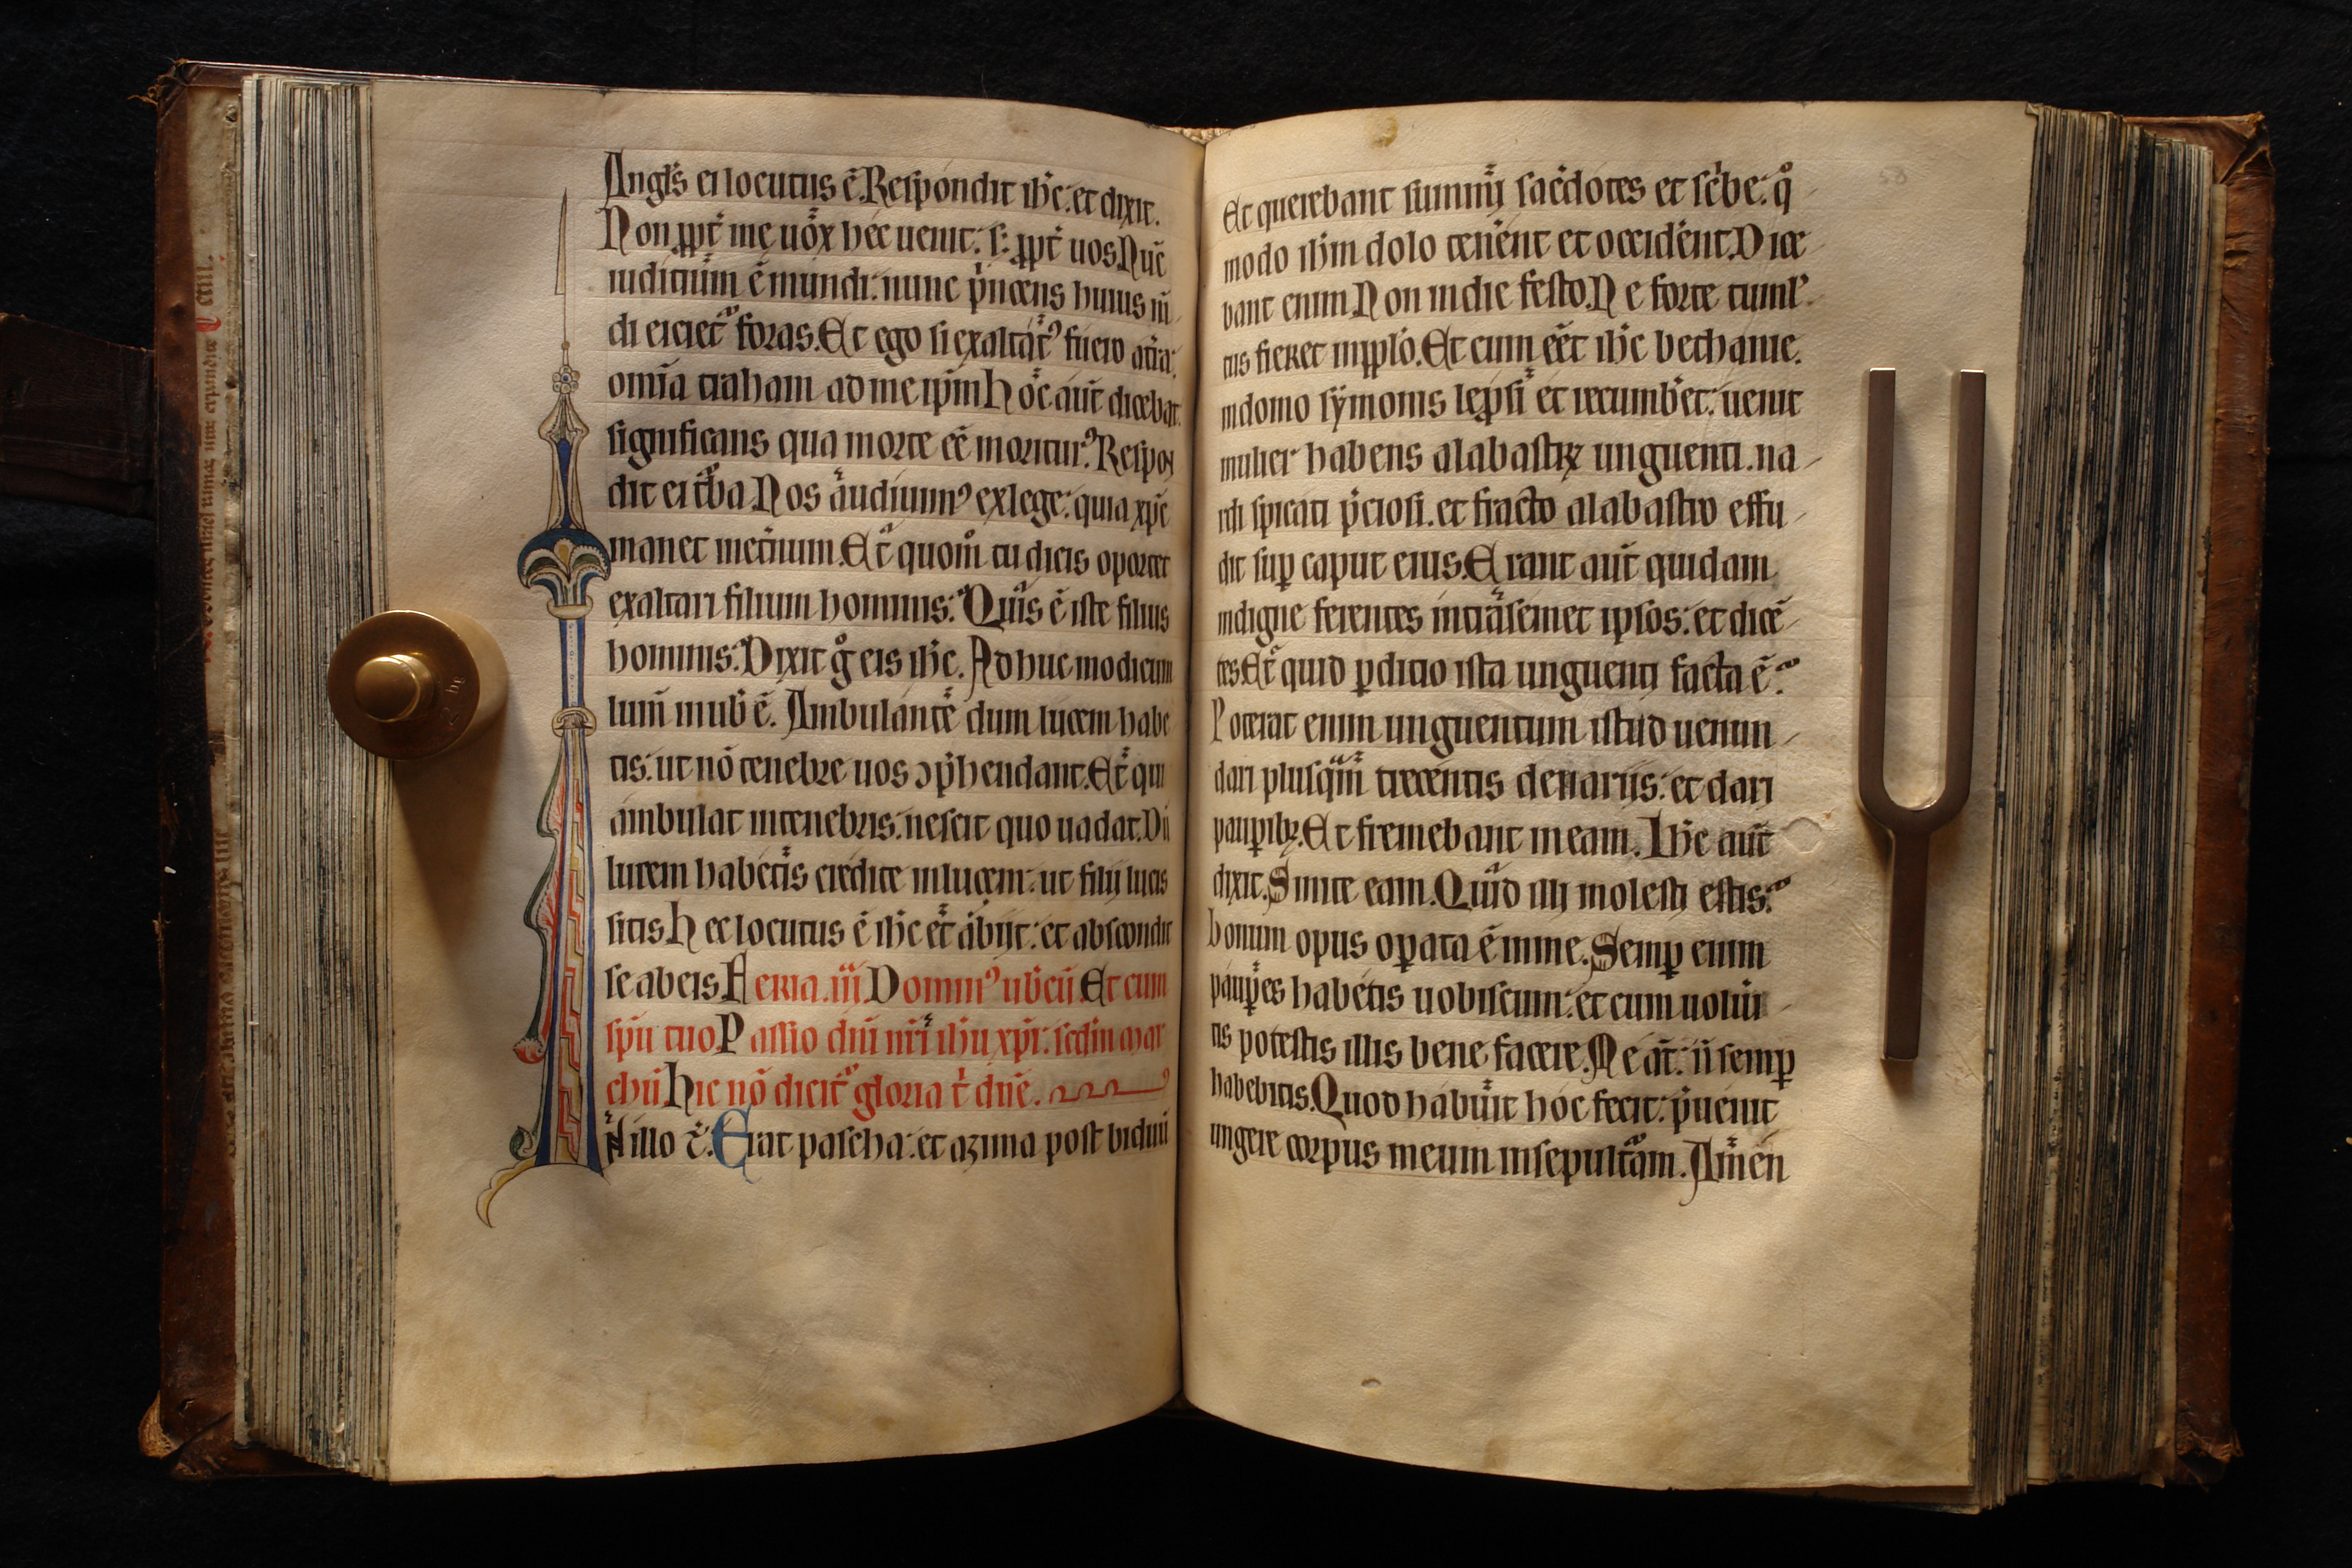 Angl's ei locutus ē. Respondit ihc̄. et dixit.
Non ꝓpt̄ me uox hec uenit: s; ꝓpt̄ uos. Nūc
iuditium ē mundi: nunc p̊nceps huius mū
di eiciet᷑ foras. Et ego si exaltat᷒ fuero at̄ra:
om̄ia traham ad me ip̄m hoc aūt dicebat.
significans qua morte eēt moritur᷒. Respon
dit ei t̄ba Nos audiuim᷒ exlege: quia xp̄c
manet inet̄num. Et quom̊ tu dicis oportet
exaltari filium hominis: Quis ē iste filius
hominis: Dixit g̊ eis ihc̄. Adhuc modicum
lum̄ inuob̄ ē. Ambulate dum lucem habe
tis: ut nō tenebre uos ꝯp̄hendant. Et qui
ambulat intenebris: nescit quo uadat. Dū
lucem habetis credite inlucem: ut filij lucis
sitis hec locutus ē ihc̄ et abijt: et abscondit
se abeis Feria .iii Domin᷒ uob̄cū Et cum
sp̄u tuo Passio dn̄i nr̄i ihū xp̄i: sedm mar
chū hic nō dicit᷑ gloria t̄ dn̄e.
In illo t̄. Erat pascha: et azima post biduū
Et querebant summi sac̄dotes et sc̄be: q̊
modo ihm dolo tenent et occident. Dice
bant enim Non indie festo. Ne forte tuml'
tus fieret inpplo. Et cum eēt ihc̄ bethanie.
indomo symonis leprosi et recumbet: uenit
mulier habens alabastrꝝ unguenti. na
rdi spicati p̄ciosi. et fracto alabastro effu
dit suꝑ caput eius. Erant aūt quidam
indigne ferentes intrasemet ipsos: et dicē
tes. Et quid ꝑditio ista unguenti facta ē?
Poterat enim unguentum istud uenun
dari plusqm̄ trecentis denariis: et dari
pauꝑibꝫ. Et fremebant ineam. Ihc̄ aūt
dixit. Sinite eam. Quid illi molesti estis?
bonum opus oꝑata ē inme. Semꝑ enim
pauꝑes habetis uobiscum: et cum uolūi
tis potestis illis bene facere. Me aūt: n̄ semꝑ
habebitis. Quod habuit hoc fecit: p̄uenit
ungere corpus meum insepulturam. Amen